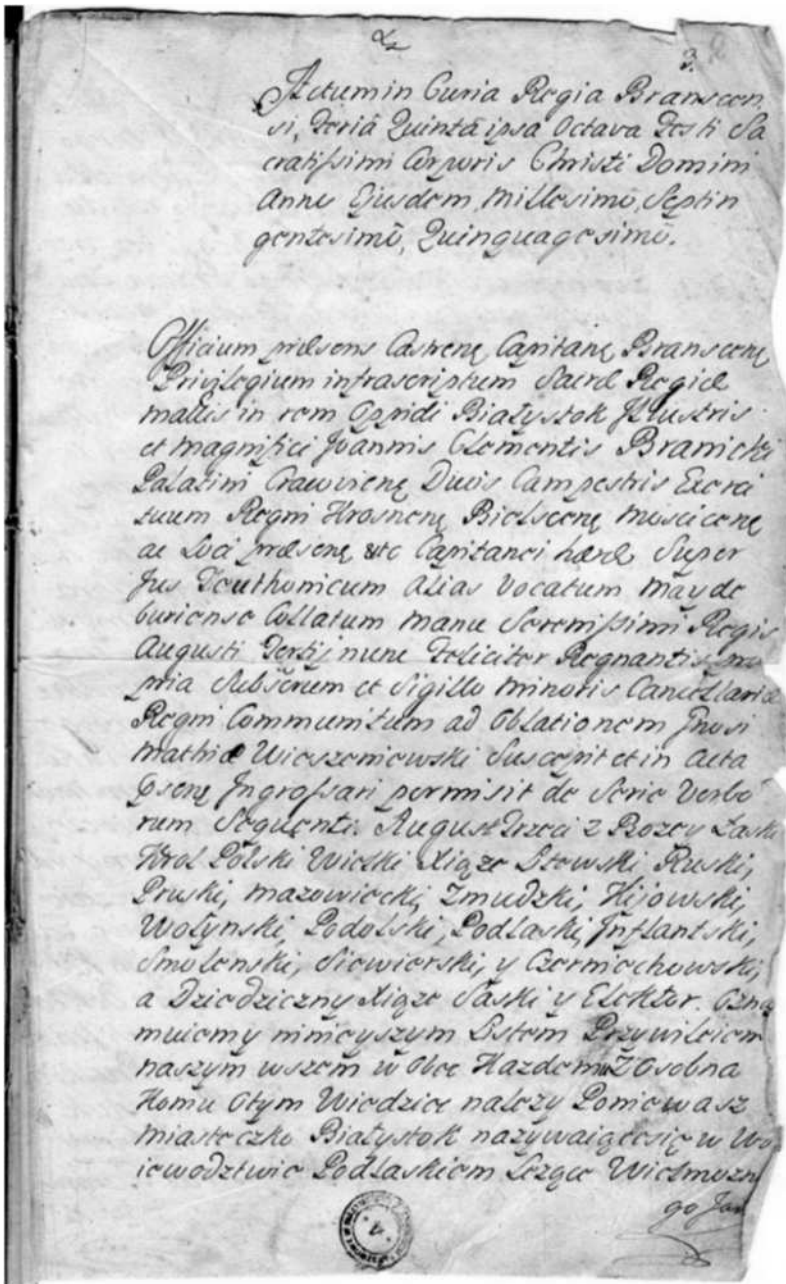 3.
Actum in Curia Regia Branscen,
si, Feriâ Quintâ ipsa Octava Festi Sa
cratissimi Corporis Christi Domini
Anno Ejusdem, Millesimô, Septin
gentesimô, Quinquagesimô.
Officium præsens Castrenę Capitanę Branscenę
Privilegium infrascriptum Sacræ Regiæ
Mattis in rem Oppidi Białystok Illustris
et Magnifici Joannis Clementis Branicki
Palatini Cracovienę Ducis Campestris Exerci
tuum Regni Krosnenę Bielscenę Moscicenę
ac Loci præsenę etc Capitanei hæred Super
Jus Teuthonicum alias Vocatum Mayde
buriense Collatum Manu Serenissimi Regis
Augusti Tertij nunc Feliciter Regnantis pro
pria Subscrum et Sigillo Minoris Cancellariæ
Regni Communitum ad Oblationem Gnosi
Mathiæ Wieszeniowski Suscepit et in Acta
Ingrossari permisit de Serie Verbo
rum Sequenti. August Trzeci z Bozey Łaski
Krol Polski Wielki Xiąze Littowski, Ruski,
Pruski, Mazowiecki, Zmudzki, Kijowski,
Wołynski, Podolski, Podlaski, Inflantski,
Smolenski, Siewierski, y Czerniechowski,
a Dziedziczny Xiąze Saski y Elektor. Ozna
muiemy ninieyszym Listem Przywileiem
naszym wszem w Obec Kazdemu z Osobna
Komu Otym Wiedziec nalezy Poniewasz
Miasteczko Białystok nazywaiącesię w Wo
iewodztwie Podlaskiem Lezące Wielmozne
go Jan